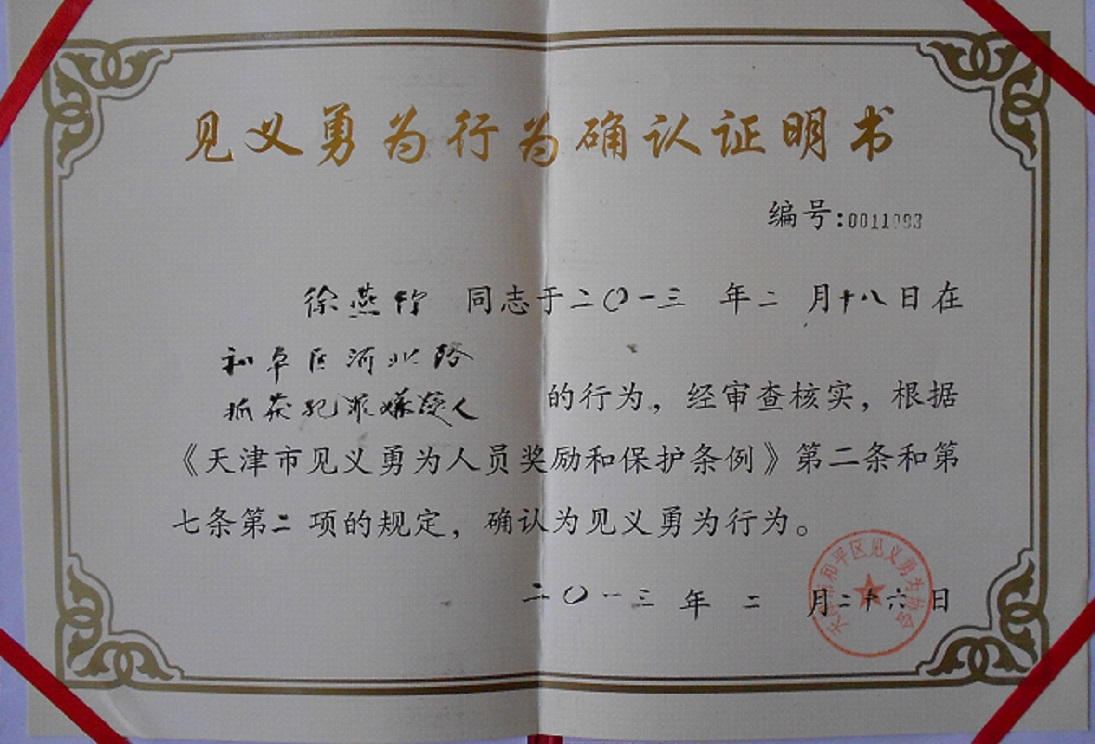 见义勇为行为确认证明书
编号:0011093
徐燕竹 同志于二〇一三 年二 月十八日在
和平区河北路
抓获犯罪嫌疑人 的行为，经审查核实，根据
《天津市见义勇为人员奖励和保护条例》第二条和第
七条第二 项的规定，确认为见义勇为行为。
二〇一三 年 二 月二十六日
天津市和平区见义勇为协会